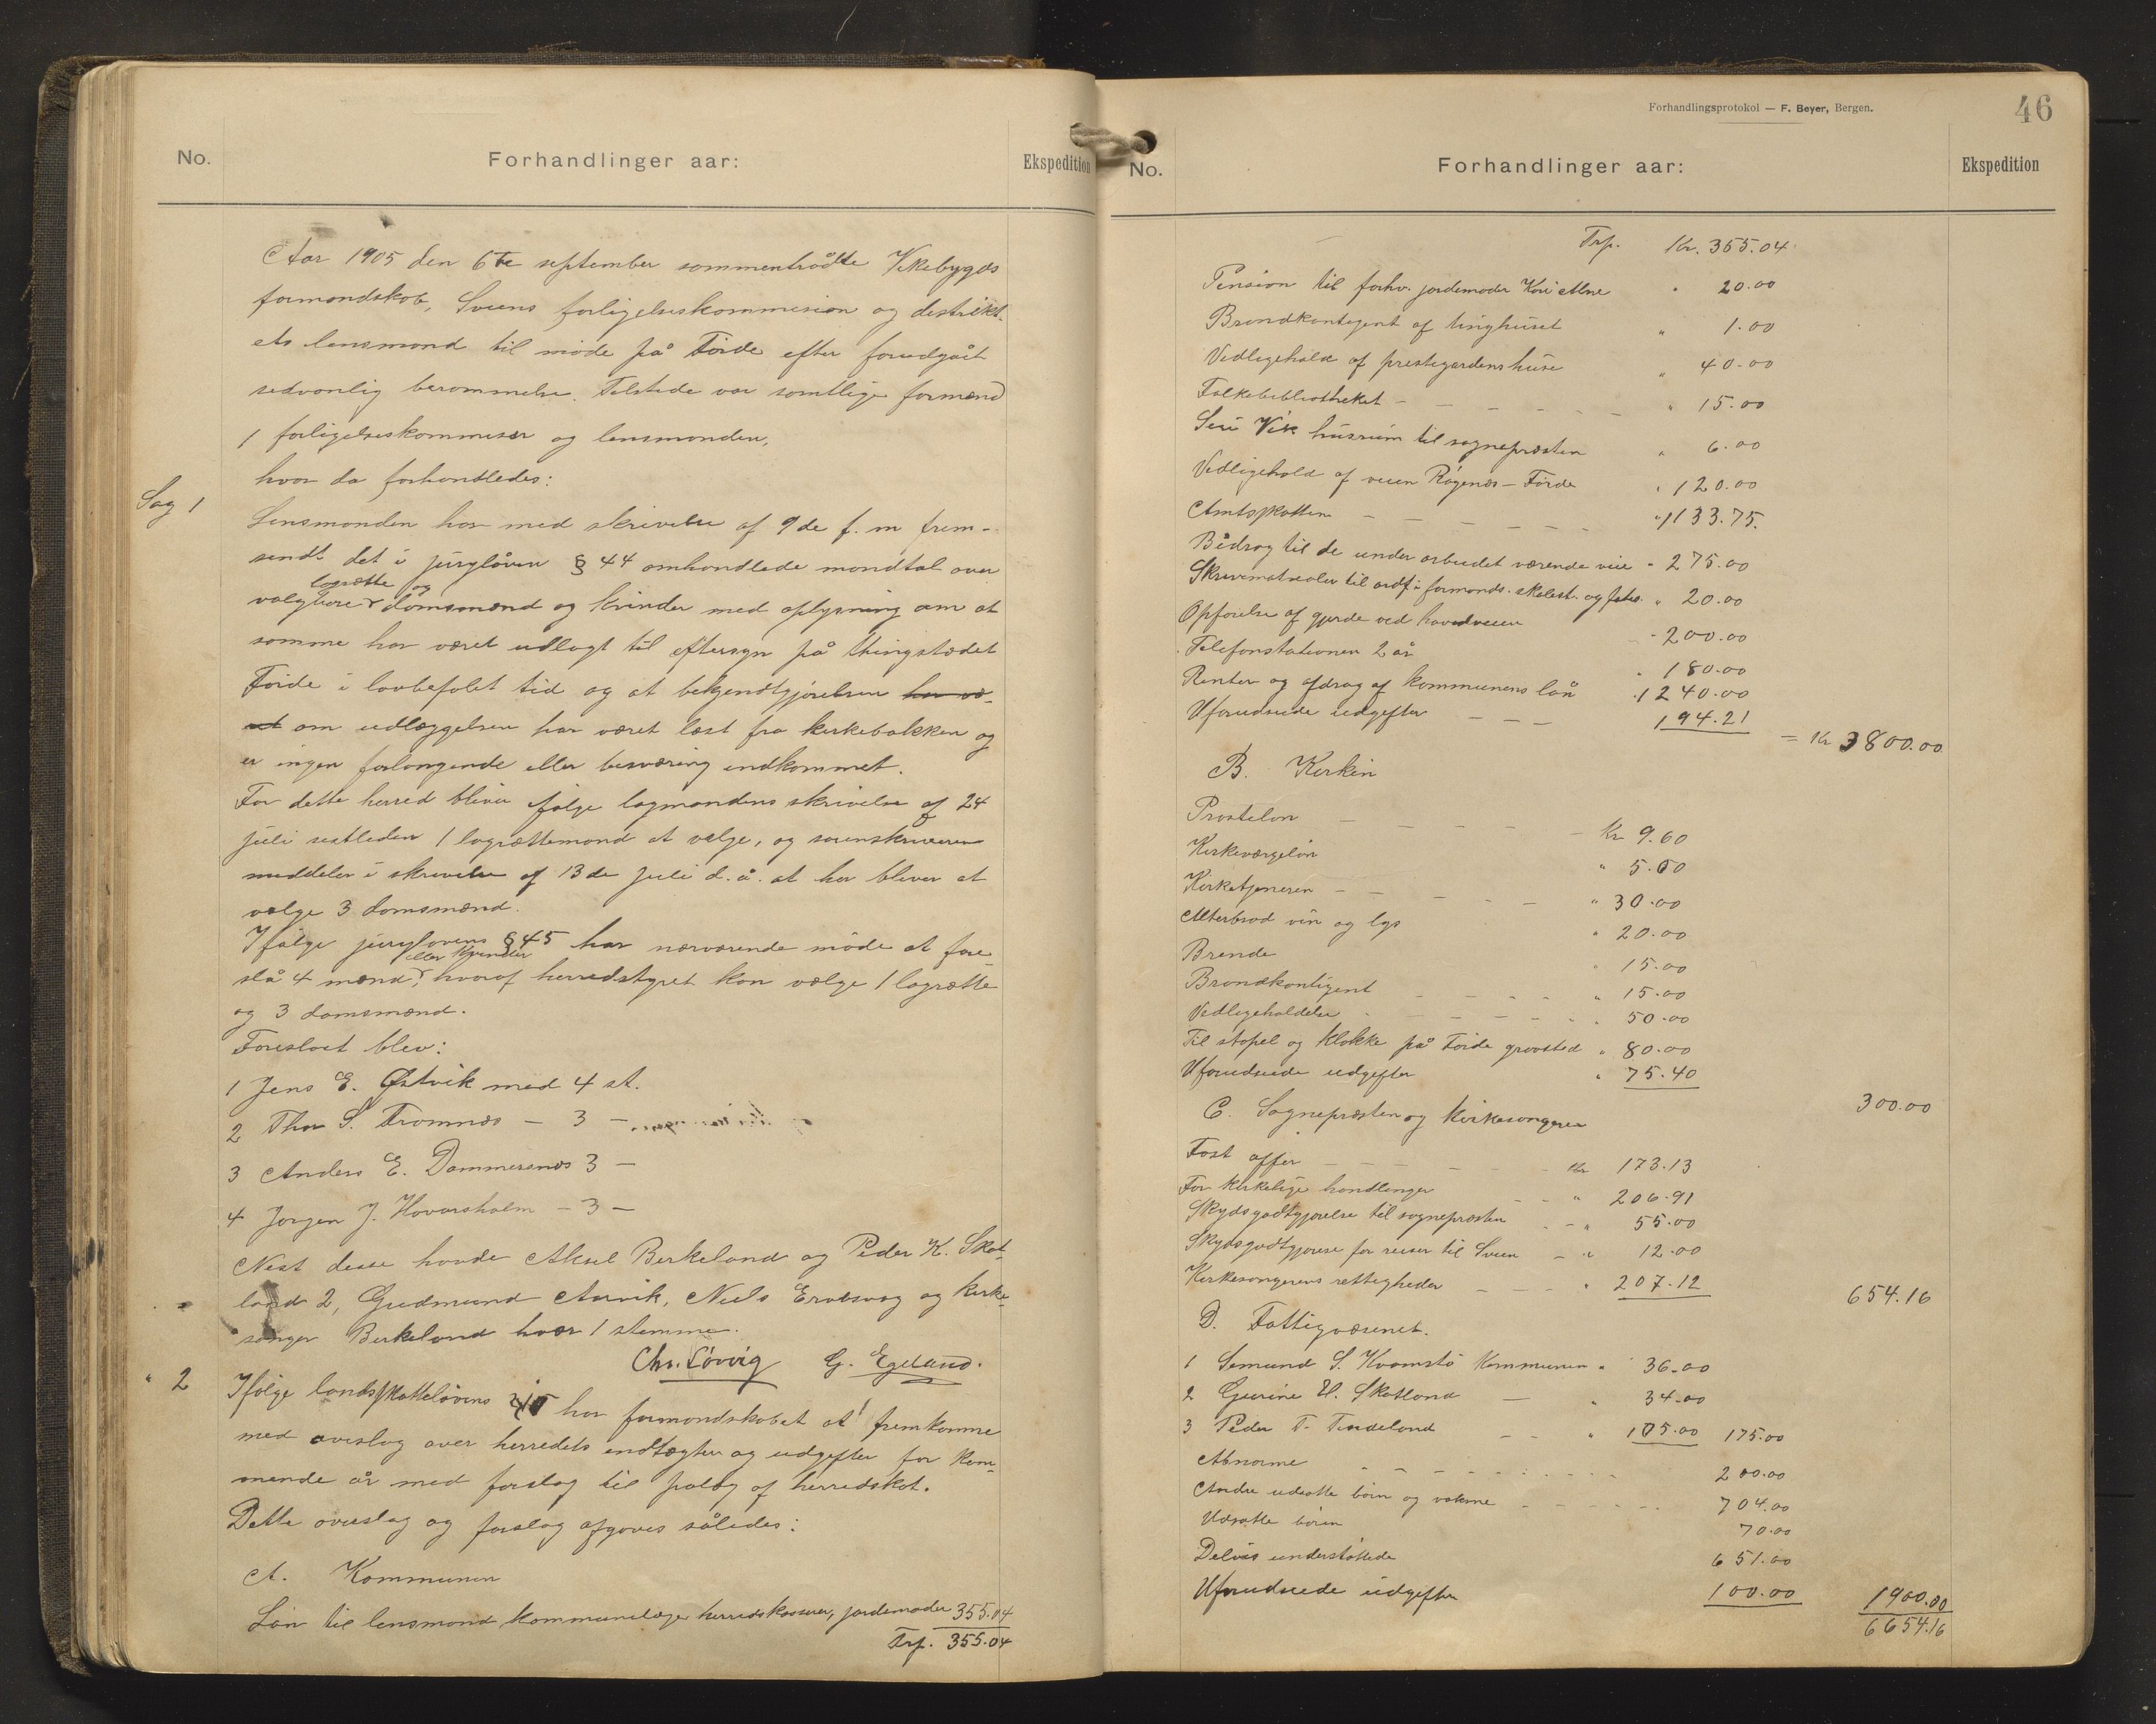 No.
Forhandlinger aar:
Ekspedition
Aar 1905 den 6te september sammentrådte Vikebygds
formandskab, Sveens forligelseskommision og destrikt-
ets lensmand til møde på Førde efter forudgået
sedvanlig berammelse. Tilstede var samtlige formænd
1 forligelseskommisær og lensmanden,
hvor da forhandledes:
Sag 1
Lensmanden har med skrivelse af 9de f. m frem-
sendt det i jurylåven § 44 omhandlede mandtal over
lagrætte og
valgbare domsmænd og kvinder med oplysning om at
samme har været udlagt til eftersyn på thingstædet
Førde i lovbefalet tid og at bekjendtgjørelsen har væ-
ret om udlæggelsen har været læst fra kirkebakken og
er ingen forlangende eller besværing indkommet.
For dette herred bliver ifølge lagmandens skrivelse af 24
juli sestleden 1 lagrættemand at vælge, og sorenskriveren
meddeler i skrivelse af 13de juli d. å. at her bliver at
vælge 3 domsmænd.
Ifølge jurylovens § 45 har nærværende møde at fore-
eller kvinder
slå 4 mænd, hvoraf herredstyret kan vælge 1 lagrætte
og 3 domsmænd.
Foreslaet blev:
1 Jens E. Østvik med 4 st.
2 Thor S. Tromnæs — 3 —
3 Anders E. Dommersnæs 3 —
4 Jørgen J. Hovarsholm — 3 —
Næst disse havde Aksel Birkeland og Peder K. Skot-
land 2, Gudmund Aurvik, Niels Ervæsvag og kirke-
sanger Birkeland hvær 1 stemme.
Chr. Løvvig G. Egeland.
" 2
Ifølge landsskattelovens har formandskabet at fremkomme
med overslag over herredets indtægter og udgifter for kom-
mende år med forslag til pålæg af herredskat.
Dette overslag og forslag afgaves således:
A. Kommunen
Løn til lensmand, kommunelæge herredskasserer, jordemoder 355.04
Trp. 355.04
Forhandlingsprotokol — F. Beyer, Bergen.
46
No.
Forhandlinger aar:
Ekspedition
Trp. Kr. 355.04
Pension til forhv. jordemoder Kari Alne " 20.00
Brandkontegent af tinghuset " 1.00
Vedligehold af prestegardens huse " 40.00
Folkebibliotheket — " 15.00
Siri Vik husrum til sognepræsten " 6.00
Vedligehold af veien Røgenæs — Førde " 120.00
Amtsskatten — " 1133.75.
Bidrag til de under arbeidet værende veie " 275.00
Skrivematrealer til ordf: formands. skolest. og " 20.00
Opførelse af gjerde ved hovedveien - 200.00
Telefonstationen 2 år " 180.00
Renter og afdrag af kommunens lån " 1240.00
Uforudseede udgifter — 194.21
= Kr 3800.00
B. Kirken
Prosteløn — Kr 9.60
Kirkeværgeløn " 5.00
Kirketjeneren — " 30.00
Alterbrød vin og lys " 20.00
Brende " 15.00
Brandkontigent " 15.00
Vedligeholdelse " 50.00
Til støpel og klokke på Førde gravsted " 80.00
Uforudseede udgifter " 75.40
300.00
C. Sognepræsten og kirkesangeren
Fast offer — Kr 173.13
For kirkelige handlinger — " 206.91
Skydsgodtgjørelse til sognepræsten — " 55.00
Skydsgodtgjørese for reiser til Sveen — " 12.00
Kirkesangerens rettigheder — " 207.12
654.16
D. Fattigvæsenet.
1 Semund S. Kvamstø Kommunen " 36.00
2 Gurine H. Skotland — " 34.00
3 Peder T. Tindeland — " 105.00 175.00
Abnorme — 200.00
Andre udsatte børn og voksne — 704.00
Udsatte børn 70.00
Delvis understøttede 651.00
Uforudseede udgifter 100.00
1900.00
6654.16